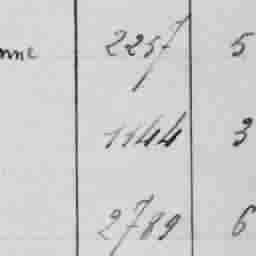 nne 2257 5
1144 3
2789 6